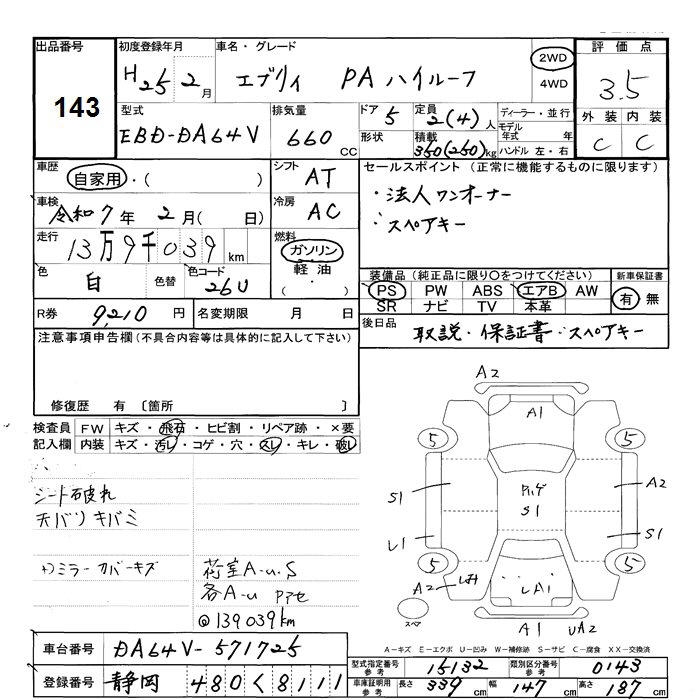 出品番号 初度登録年月 車名・グレード 評価点
143 H25年2月 エブリイ PA ハイルーフ 2WD 4WD 3.5
型式 排気量 ドア 5 定員 2(4)人 ディーラー・並行 外装 内装
EBD-DA64V 660 CC 形状 積載 350(250)kg モデル年式 年 ハンドル 左・右 C C
車歴 自家用・( ) シフト AT セールスポイント (正常に機能するものに限ります)
車検 令和7年2月( 日) 冷房 AC ・法人ワンオーナー
走行 13万9千039km 燃料 ガソリン 軽油 ・( ) ・スペアキー
色 白 色替 色コード 26U 装備品(純正品に限り○をつけてください) 新車保証書
PS PW ABS エアB AW 有 無
SR ナビ TV 本革
R券 9,210 円 名変期限 月 日 後日品 取説・保証書・スペアキー
注意事項申告欄(不具合内容等は具体的に記入して下さい)
修復歴 有 〔箇所 〕
検査員 FW キズ・飛石・ヒビ割・リペア跡・×要
記入欄 内装 キズ・汚レ・コゲ・穴・スレ・キレ・破レ
シート破れ
天バリキバミ
ミラーカバーキズ 荷室A-u.S
各A-u
@139039km
A2
A1
5 5
S1 A2
S1
L1 S1
5 5
A2
A1
スペア A1 UA2
A-キズ E-エクボ U-凹み W-補修跡 S-サビ C-腐食 XX-交換済
車台番号 DA64V-571725 型式指定番号 参考 15132 類別区分番号 参考 0143
登録番号 静岡 480 く 8111 車庫証明用 参考 長さ 339 cm 幅 147 cm 高さ 187 cm